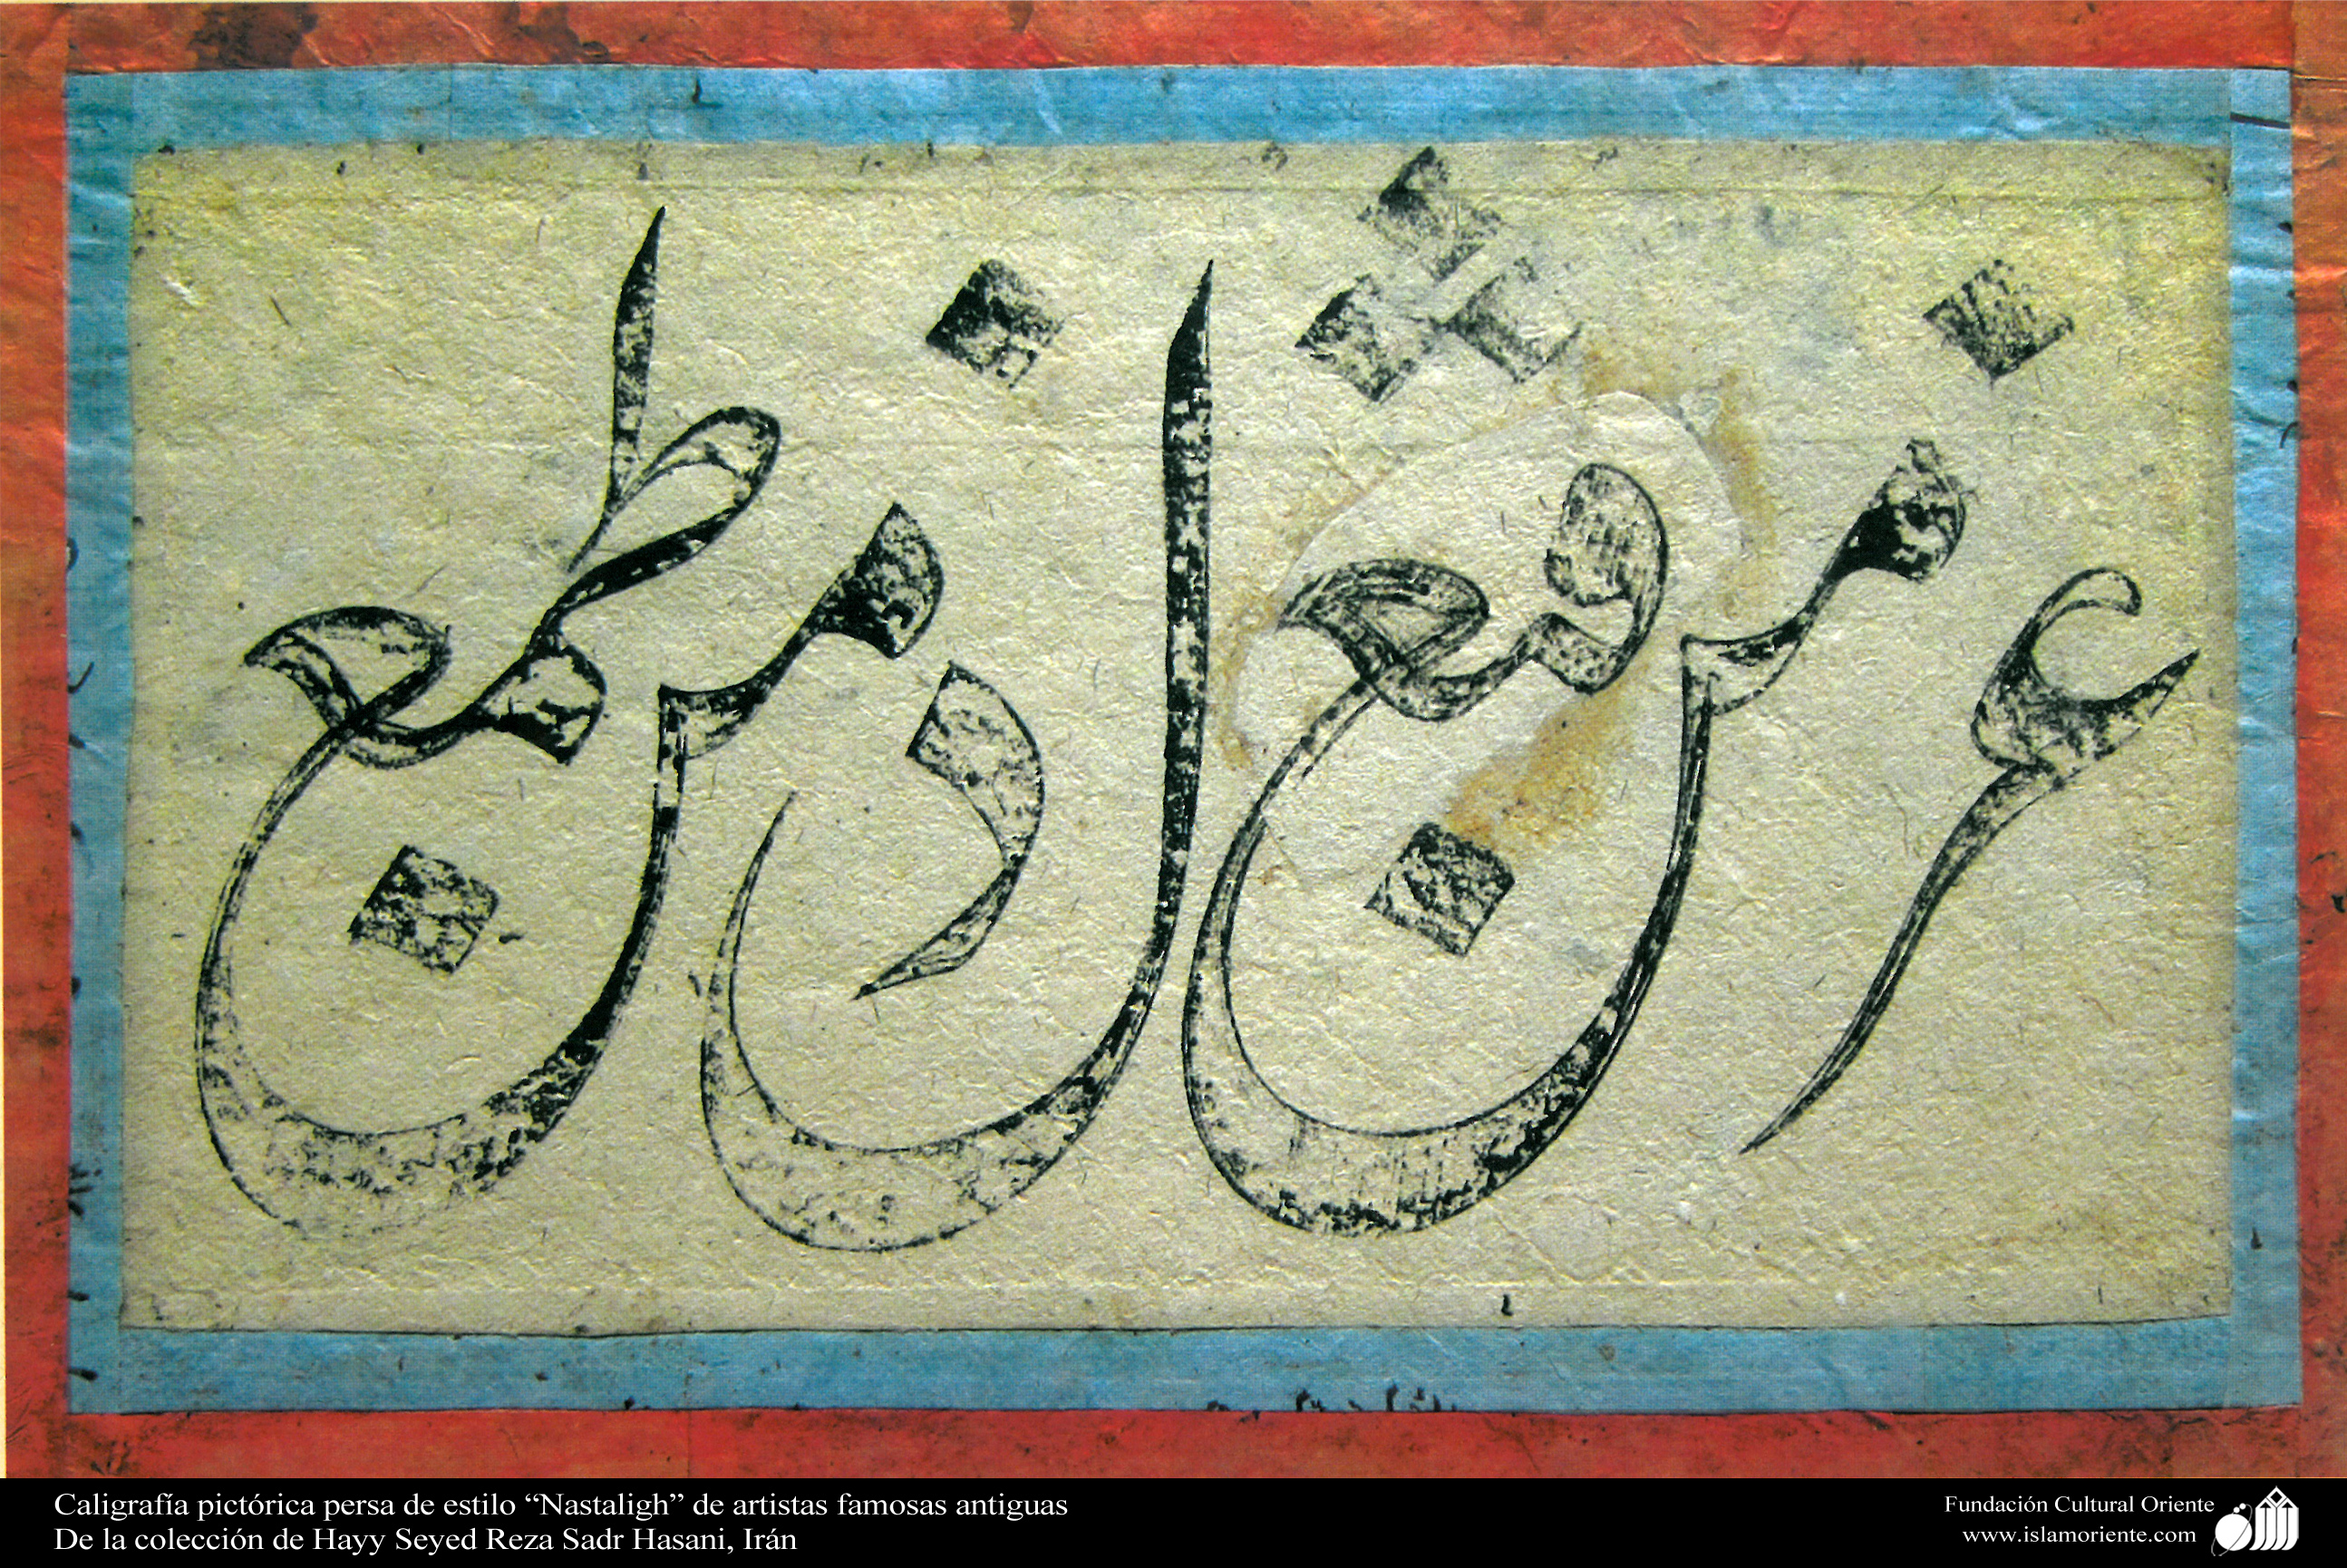 عز من قنع ذل من طمع
Caligrafía pictórica persa de estilo “Nastaligh” de artistas famosas antiguas
De la colección de Hayy Seyed Reza Sadr Hasani, Irán
Fundación Cultural Oriente
www.islamoriente.com